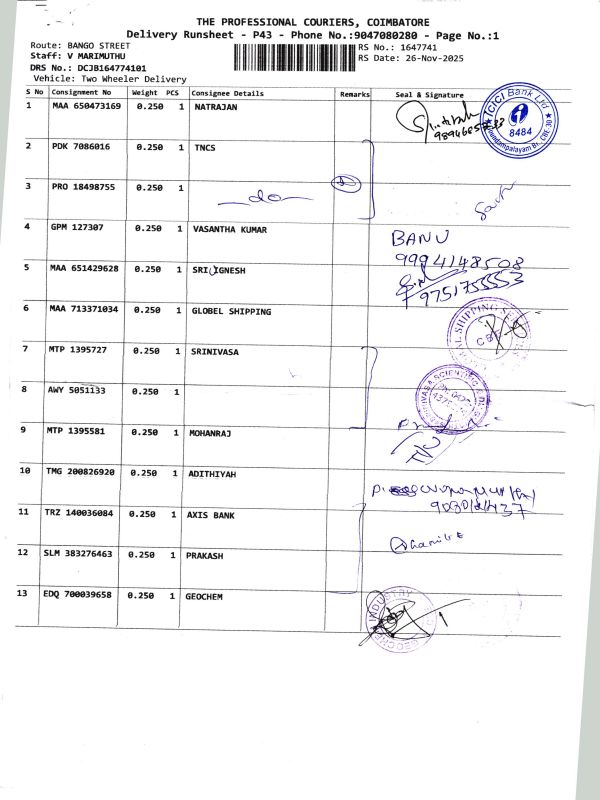 THE PROFESSIONAL COURIERS, COIMBATORE
Delivery Runsheet - P43 - Phone No.:9047080280 - Page No.:1
Route: BANGO STREET
RS No.: 1647741
Staff: V MARIMUTHU
RS Date: 26-Nov-2025
DRS No.: DCJB164774101
Vehicle: Two Wheeler Delivery
S No Consignment No Weight PCS Consignee Details Remarks Seal & Signature
1 MAA 650473169 0.250 1 NATRAJAN
ICICI Bank Ltd
8484
2 PDK 7086016 0.250 1 TNCS
3 PRO 18498755 0.250 1 —do—
4 GPM 127307 0.250 1 VASANTHA KUMAR BANU
9994148508
5 MAA 651429628 0.250 1
9751755553
6 MAA 713371034 0.250 1 GLOBEL SHIPPING
7 MTP 1395727 0.250 1 SRINIVASA
8 AWY 5051133 0.250 1
9 MTP 1395581 0.250 1 MOHANRAJ
10 TMG 200826920 0.250 1 ADITHIYAH
11 TRZ 140036084 0.250 1 AXIS BANK
12 SLM 383276463 0.250 1 PRAKASH
13 EDQ 700039658 0.250 1 GEOCHEM